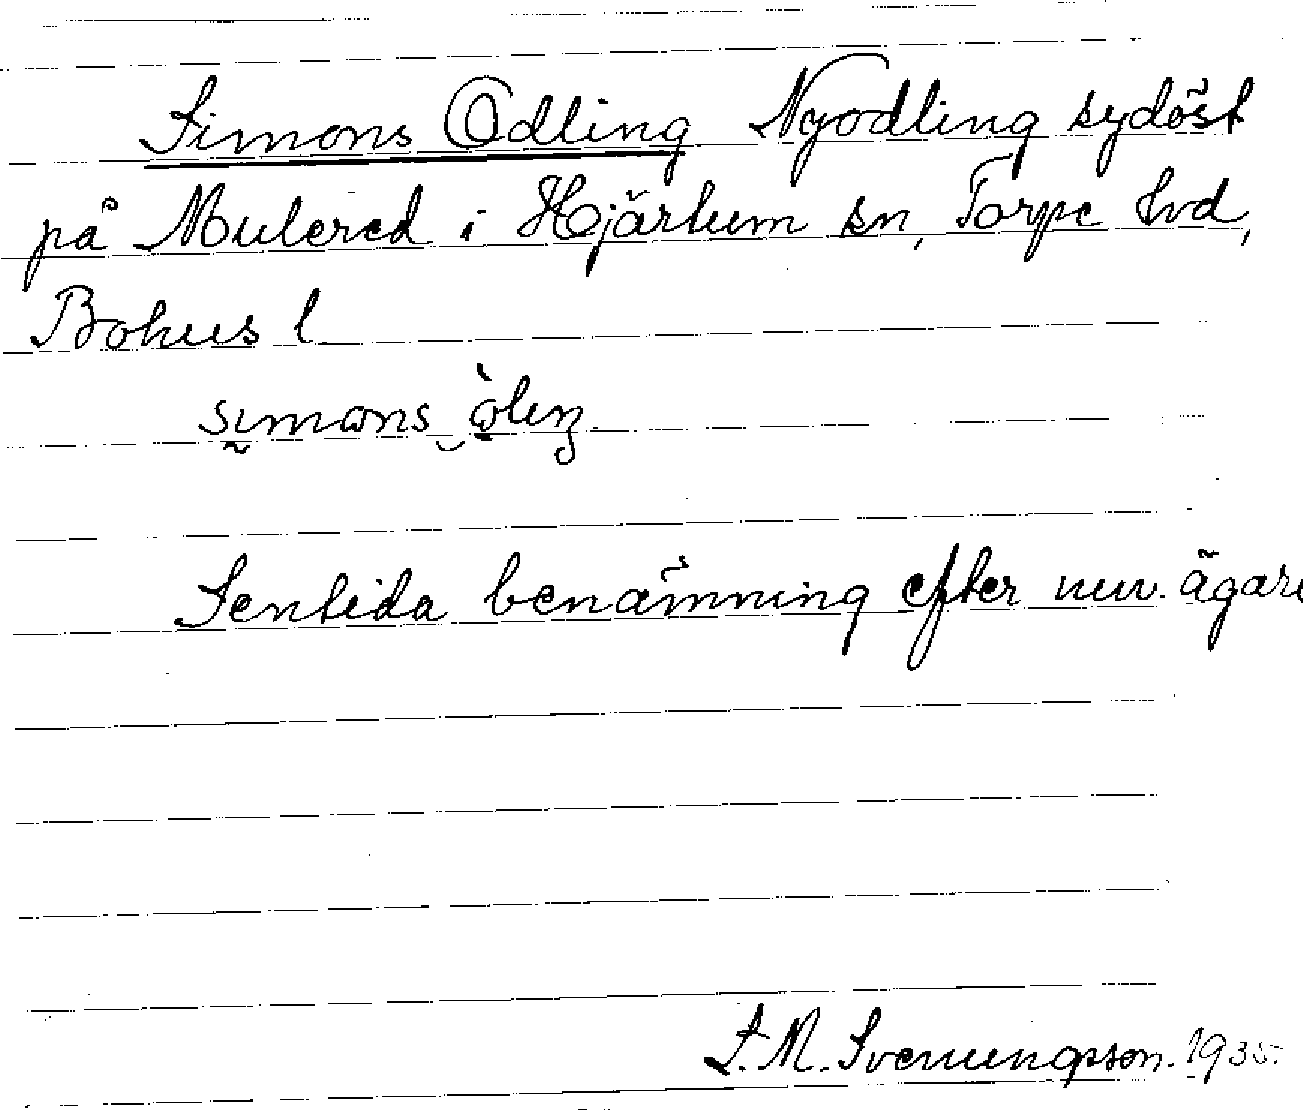 Simons Odling Nyodling sydöst
på Mulered i Hjärtum sn, Torpe hd,
Bohus l
Sentida benämning efter nuv. ägare
S. M. Svenungsson. 1935.